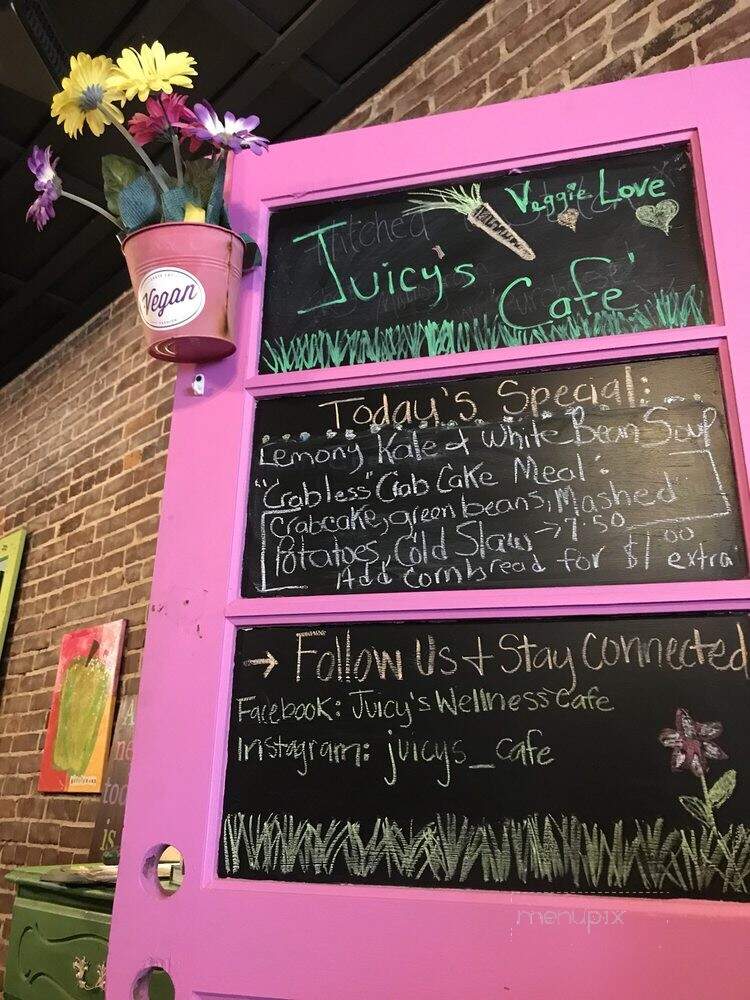 Vegan
Veggie Love
Juicy's
Cafe'
Today's Special:
Lemony Kale & White Bean Soup
"Crabless" Crab Cake Meal:
Crabcake, green beans, Mashed
Potatoes, Cold Slaw → 7.50
Add cornbread for $1.00 extra
→ Follow Us + Stay Connected
Facebook: Juicy's Wellness Cafe
Instagram: juicys_cafe
menupix